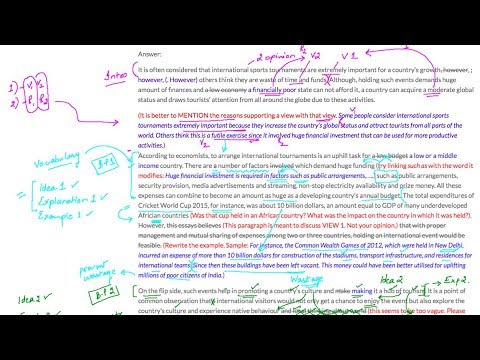 Answer:
It is often considered that international sports tournaments are extremely important for a country's growth, however, ;
however, (, However) others think they are waste of time and funds. Although, holding such events demands huge
amount of finances and a low economy a financially poor state can not afford it, a country can acquire a moderate global
status and draws tourists' attention from all around the globe due to these activities.
(It is better to MENTION the reasons supporting a view with that view. Some people consider international sports
tournaments extremely important because they increase the country's global status and attract tourists from all parts of the
world. Others think this is a futile exercise since it involved huge financial investment that can be used for more productive
activities.)
According to economists, to arrange international tournaments is an uphill task for a low budget a low or a middle
income country. There are a number of factors involved which demand huge funding (try linking such as with the word it
modifies: Huge financial investment is required in factors such as public arrangements, ..., such as public arrangements,
security provision, media advertisements and streaming, non-stop electricity availability and prize money. All these
expenses can combine to become an amount as huge as a developing country's annual budget. The total expenditures of
Cricket World Cup 2015, for instance, was about 10 billion dollars, an amount equal to GDP of many underdeveloped
African countries (Was that cup held in an African country? What was the impact on the country in which it was held?).
However, this essays believes (This paragraph meant to discuss VIEW 1. Not your opinion.) that with proper
management and mutual sharing of expenses among two or three countries, holding an international event would be
feasible. (Rewrite the example. Sample: For instance, the Common Wealth Games of 2012, which were held in New Delhi,
incurred an expense of more than 10 billion dollars for construction of the stadiums, transport infrastructure, and residences for
international teams. Since then these buildings have been left vacant. This money could have been better utilised for uplifting
millions of poor citizens of India.)
On the flip side, such events help in promoting a country's culture and make making it a hub of tourism. It is a point of
common observation that international visitors would not only get a chance to enjoy the event but also explore the
country's culture and experience native behaviour
2 opinion
V2
V1
Intro
Vocabulary
BP1
Idea 1
Explanation 1
Example 1
Wastage
BP2
Idea 2
Idea 2
Exp 2